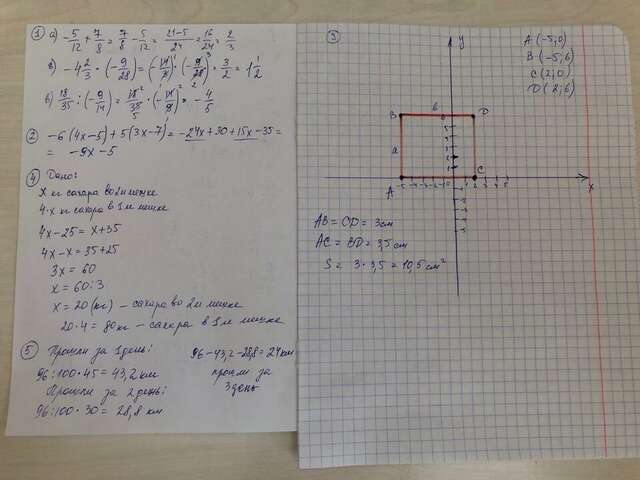 1) а) -5/12 + 7/8 = 7/8 - 5/12 = 21-5/24 = 16/24 = 2/3
в) -4 2/3 · (-9/28) = (-14/3) · (-9/28) = 3/2 = 1 1/2
б) 18/35 : (-9/14) = 18/35 · (-14/9) = -4/5
2) -6(4x-5)+5(3x-7) = -24x+30+15x-35=
= -9x-5
4) Дано:
x кг сахара во 2м мешке
4·x кг сахара в 1м мешке
4x-25 = x+35
4x-x = 35+25
3x = 60
x = 60:3
x = 20(кг) - сахара во 2м мешке
20·4 = 80кг - сахара в 1м мешке
5) Прошли за 1 день:
96:100·45 = 43,2 км
Прошли за 2 день:
96:100·30 = 28,8 км
96-43,2-28,8=24км
прошли за
3 день
3)
y
A (-5;0)
B (-5;6)
C (2;0)
D (2;6)
B
в
6
D
a
A
C
x
AB = CD = 3см
AC = BD = 3,5см
S = 3·3,5 = 10,5 см²